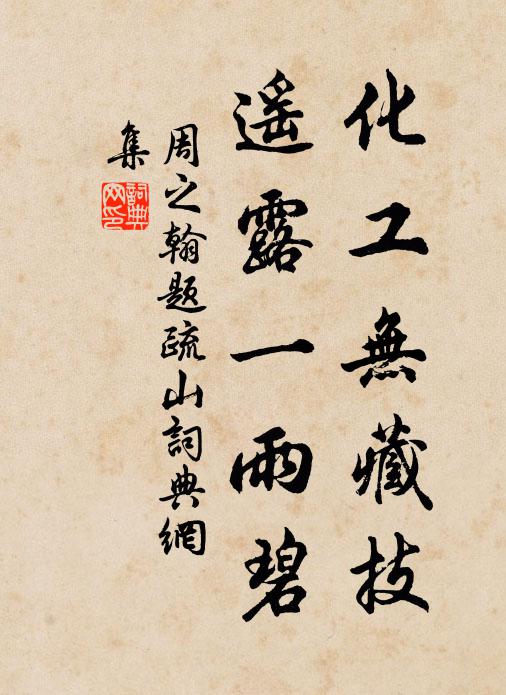 化工無藏技
遥露一雨碧
周之翰題疏山詞典網
集
詞典網印